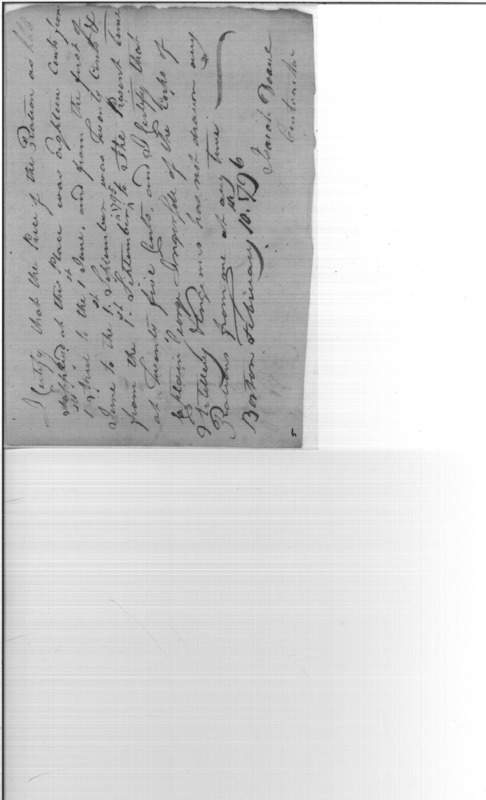 I Certify that the Price of the Ration as
Supplied at this Place was eighteen Cents from
1st April to the 1st June. and from the first of
June to the 1st September was twenty Cents &
from the 1st September 1795 to the Present time
at twenty five Cents, and I Certify that
Captain George Ingersoll of the Corps of
Artillery & Engineers has not drawn any
Rations from me at any time
Boston February 10th 1796
Isaiah Doane
Contractor
5